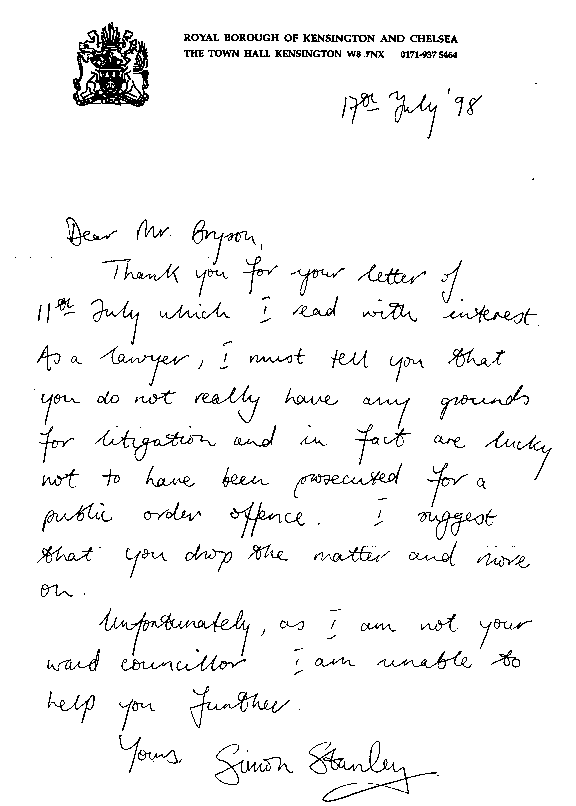 ROYAL BOROUGH OF KENSINGTON AND CHELSEA
THE TOWN HALL KENSINGTON W8 7NX 0171-937 5464
17th July '98
Dear Mr. Bryson,
Thank you for your letter of
11th July which I read with interest.
As a lawyer, I must tell you that
you do not really have any grounds
for litigation and in fact are lucky
not to have been prosecuted for a
public order offence. I suggest
that you drop the matter and move
on.
Unfortunately, as I am not your
ward councillor I am unable to
help you further.
Yours
Simon Stanley